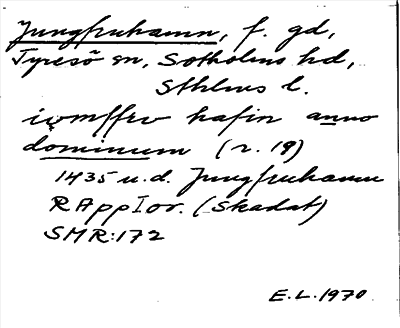 Jungfruhamn, f. gd,
Tyresö sn, Sotholms hd,
Sthlms l.
iomffrv hafin anno
dominum (r. 19)
1435 u.d. Jungfruhamn
RAppIor. (Skadat)
SMR:172
E.L. 1970